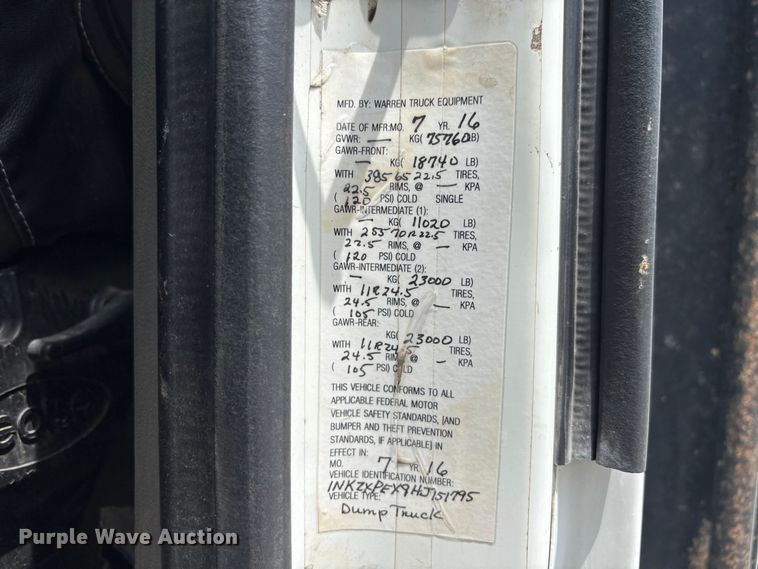 MFD. BY: WARREN TRUCK EQUIPMENT
DATE OF MFR:MO. 7 YR. 16
GVWR: — KG( 75760LB)
GAWR-FRONT:
— KG( 18740 LB)
WITH 385 65 22.5 TIRES,
22.5 RIMS, @ — KPA
( 120 PSI) COLD SINGLE
GAWR-INTERMEDIATE (1):
— KG( 11020 LB)
WITH 255 70R 22.5 TIRES,
22.5 RIMS, @ — KPA
( 120 PSI) COLD
GAWR-INTERMEDIATE (2):
— KG( 23000 LB)
WITH 11R24.5 TIRES,
24.5 RIMS, @ — KPA
( 105 PSI) COLD
GAWR-REAR:
KG( 23000 LB)
WITH 11R24.5 TIRES,
24.5 RIMS @ — KPA
( 105 PSI) COLD
THIS VEHICLE CONFORMS TO ALL
APPLICABLE FEDERAL MOTOR
VEHICLE SAFETY STANDARDS, [AND
BUMPER AND THEFT PREVENTION
STANDARDS, IF APPLICABLE] IN
EFFECT IN:
MO. 7 — YR. 16
VEHICLE IDENTIFICATION NUMBER:
1NKZXPEX9HJ151795
VEHICLE TYPE:
Dump Truck
Purple Wave Auction